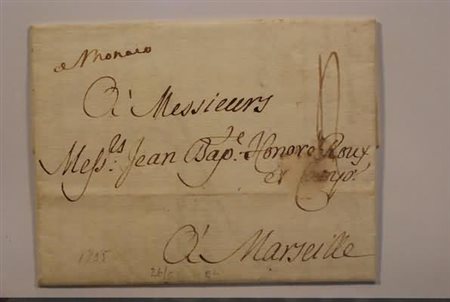 de Monaco
A Messieurs
Mess.rs Jean Bap.e Honoré Roux
et Comp.
A Marseille